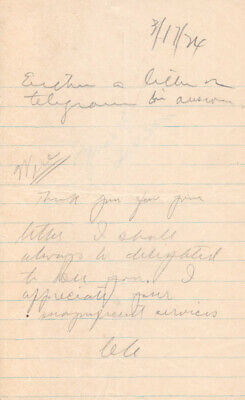 3/17/24
Either a letter or
telegram for answer
Thank you for your
letter. I shall
always be delighted
to see you. I
appreciate your
magnificent services